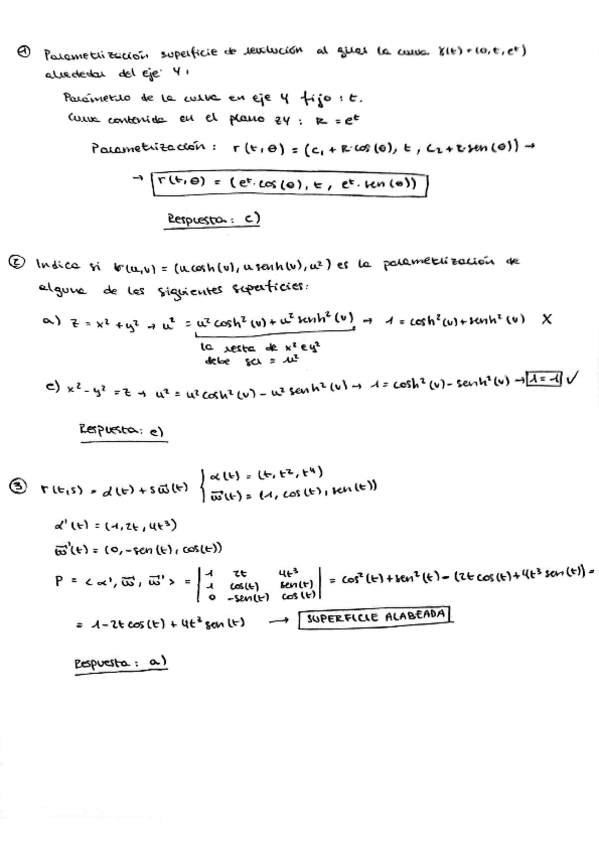 ① Parametrización superficie de revolución al girar la curva γ(t) = (0, t, eᵗ)
alrededor del eje Y.
Parámetro de la curva en eje Y fijo: t.
Curva contenida en el plano ZY: R = eᵗ
Parametrización: r(t,θ) = (c₁ + R·cos(θ), t, c₂ + R·sen(θ)) →
→ r(t,θ) = (eᵗ·cos(θ), t, eᵗ·sen(θ))
Respuesta: c)
② Indica si r(u,v) = (u cosh(v), u senh(v), u²) es la parametrización de
alguna de las siguientes superficies:
a) z = x² + y² → u² = u² cosh²(v) + u² senh²(v) → 1 = cosh²(v) + senh²(v) X
la resta de x² e y²
debe ser = u²
e) x² - y² = z → u² = u² cosh²(v) - u² senh²(v) → 1 = cosh²(v) - senh²(v) → 1 = 1 ✓
Respuesta: e)
③ r(t,s) = α(t) + s w⃗(t) { α(t) = (t, t², t⁴)
w⃗(t) = (1, cos(t), sen(t))
α'(t) = (1, 2t, 4t³)
w⃗'(t) = (0, -sen(t), cos(t))
P = < α', w⃗, w⃗' > = | 1 2t 4t³ | = cos²(t) + sen²(t) - (2t cos(t) + 4t³ sen(t)) =
| 1 cos(t) sen(t) |
| 0 -sen(t) cos(t) |
= 1 - 2t cos(t) + 4t³ sen(t) → SUPERFICIE ALABEADA
Respuesta: a)